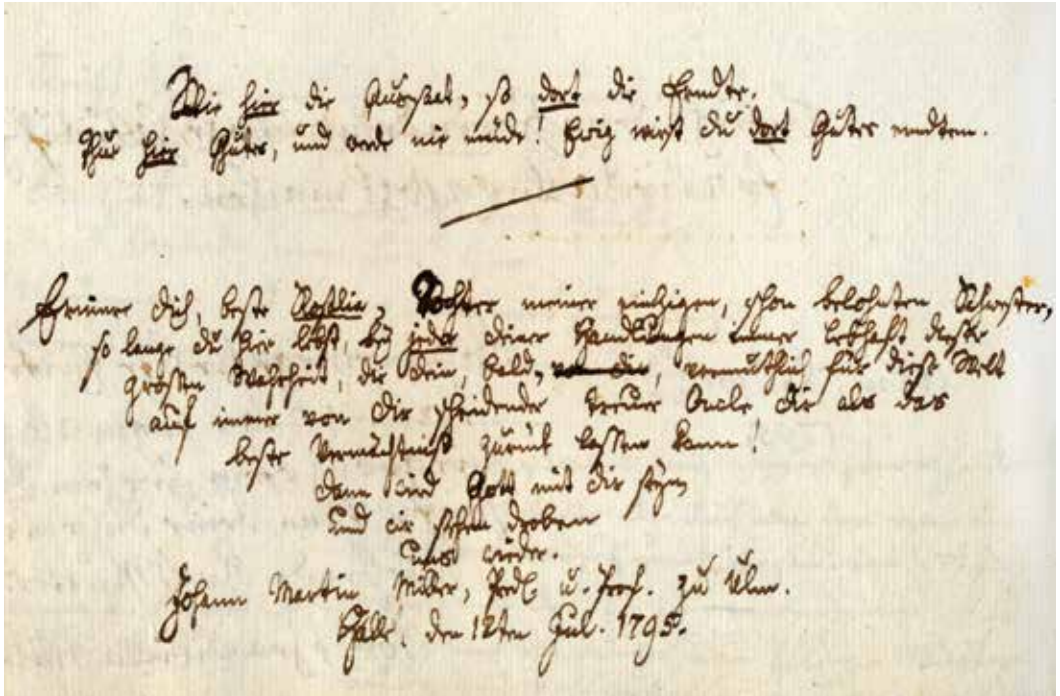 Wie hier die Aussaat, so dort die Erndte.
Thu hier Gutes, und werde nie müde! Ewig wirst du dort Gutes erndten.
Erinnre dich, beste Tochter meiner einzigen, schon belohnten Schwester,
so lange du hier lebst, bey jeder deiner Handlungen immer lebhaft dieser
großen Wahrheit, die dein, bald, vermuthlich für diese Welt
auf immer von dir scheidender treuer Oncle dir als das
beste Vermächtniß zurück lassen kann!
Dann wird Gott mit dir seyn
und wir sehen droben
uns wieder.
Johann Martin Miller, Pred. u. Prof. zu Ulm.
den 12ten Jul. 1795.